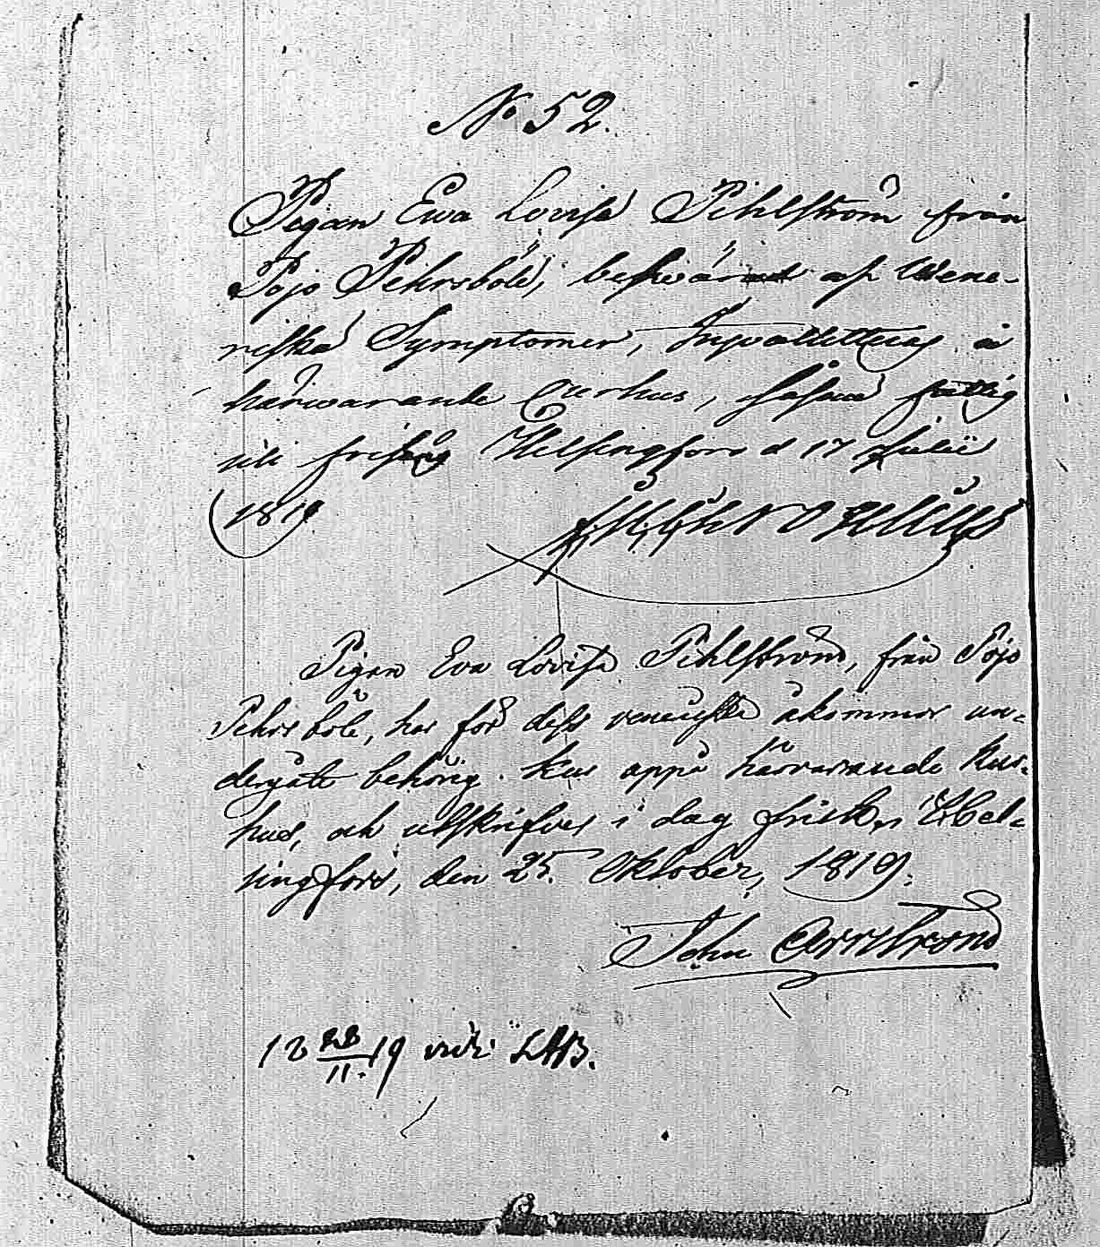 No 52.
Pigan Ewa Lovisa Pihlström från
Pojo Pehrsböle, beswärad af Wene-
riska Symptomer, å
härwarande Curhus, såsom fattig
till frisäng Helsingfors d 17 Julii
1819
Pigan Eva Lovisa Pihlström, från Pojo
Pehrsböle, har för dess veneriska åkommor un-
dergått behörig kur uppå härvarande Kur-
hus, och utskrifves i dag frisk, Hel-
singfors, den 25. Oktober, 1819.
John
18 28/11. 19 vidi